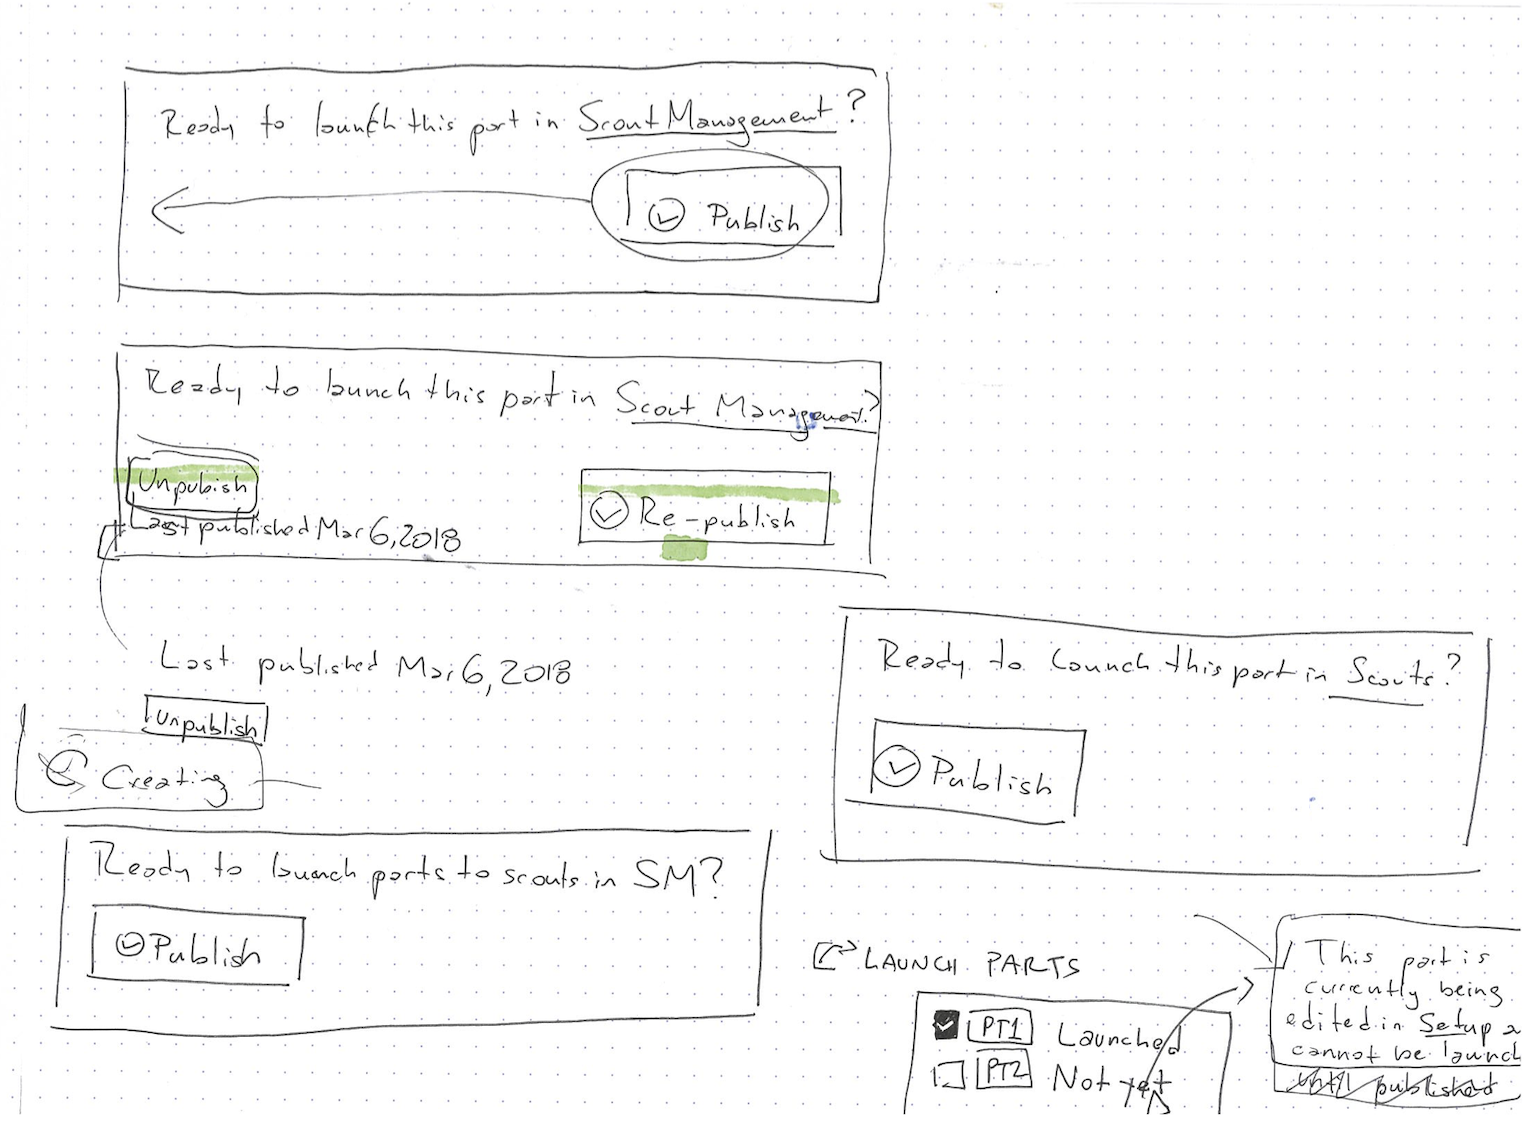 Ready to launch this part in Scout Management?
Publish
Ready to launch this part in Scout Management?
Unpubish
Last published Mar 6, 2018
Re-publish
Last published Mar 6, 2018
Unpublish
Creating
Ready to launch this part in Scouts?
Publish
Ready to launch parts to scouts in SM?
Publish
LAUNCH PARTS
PT1 Launched
PT2 Not yet
This part is
currently being
edited in Setup
cannot be launch
until published